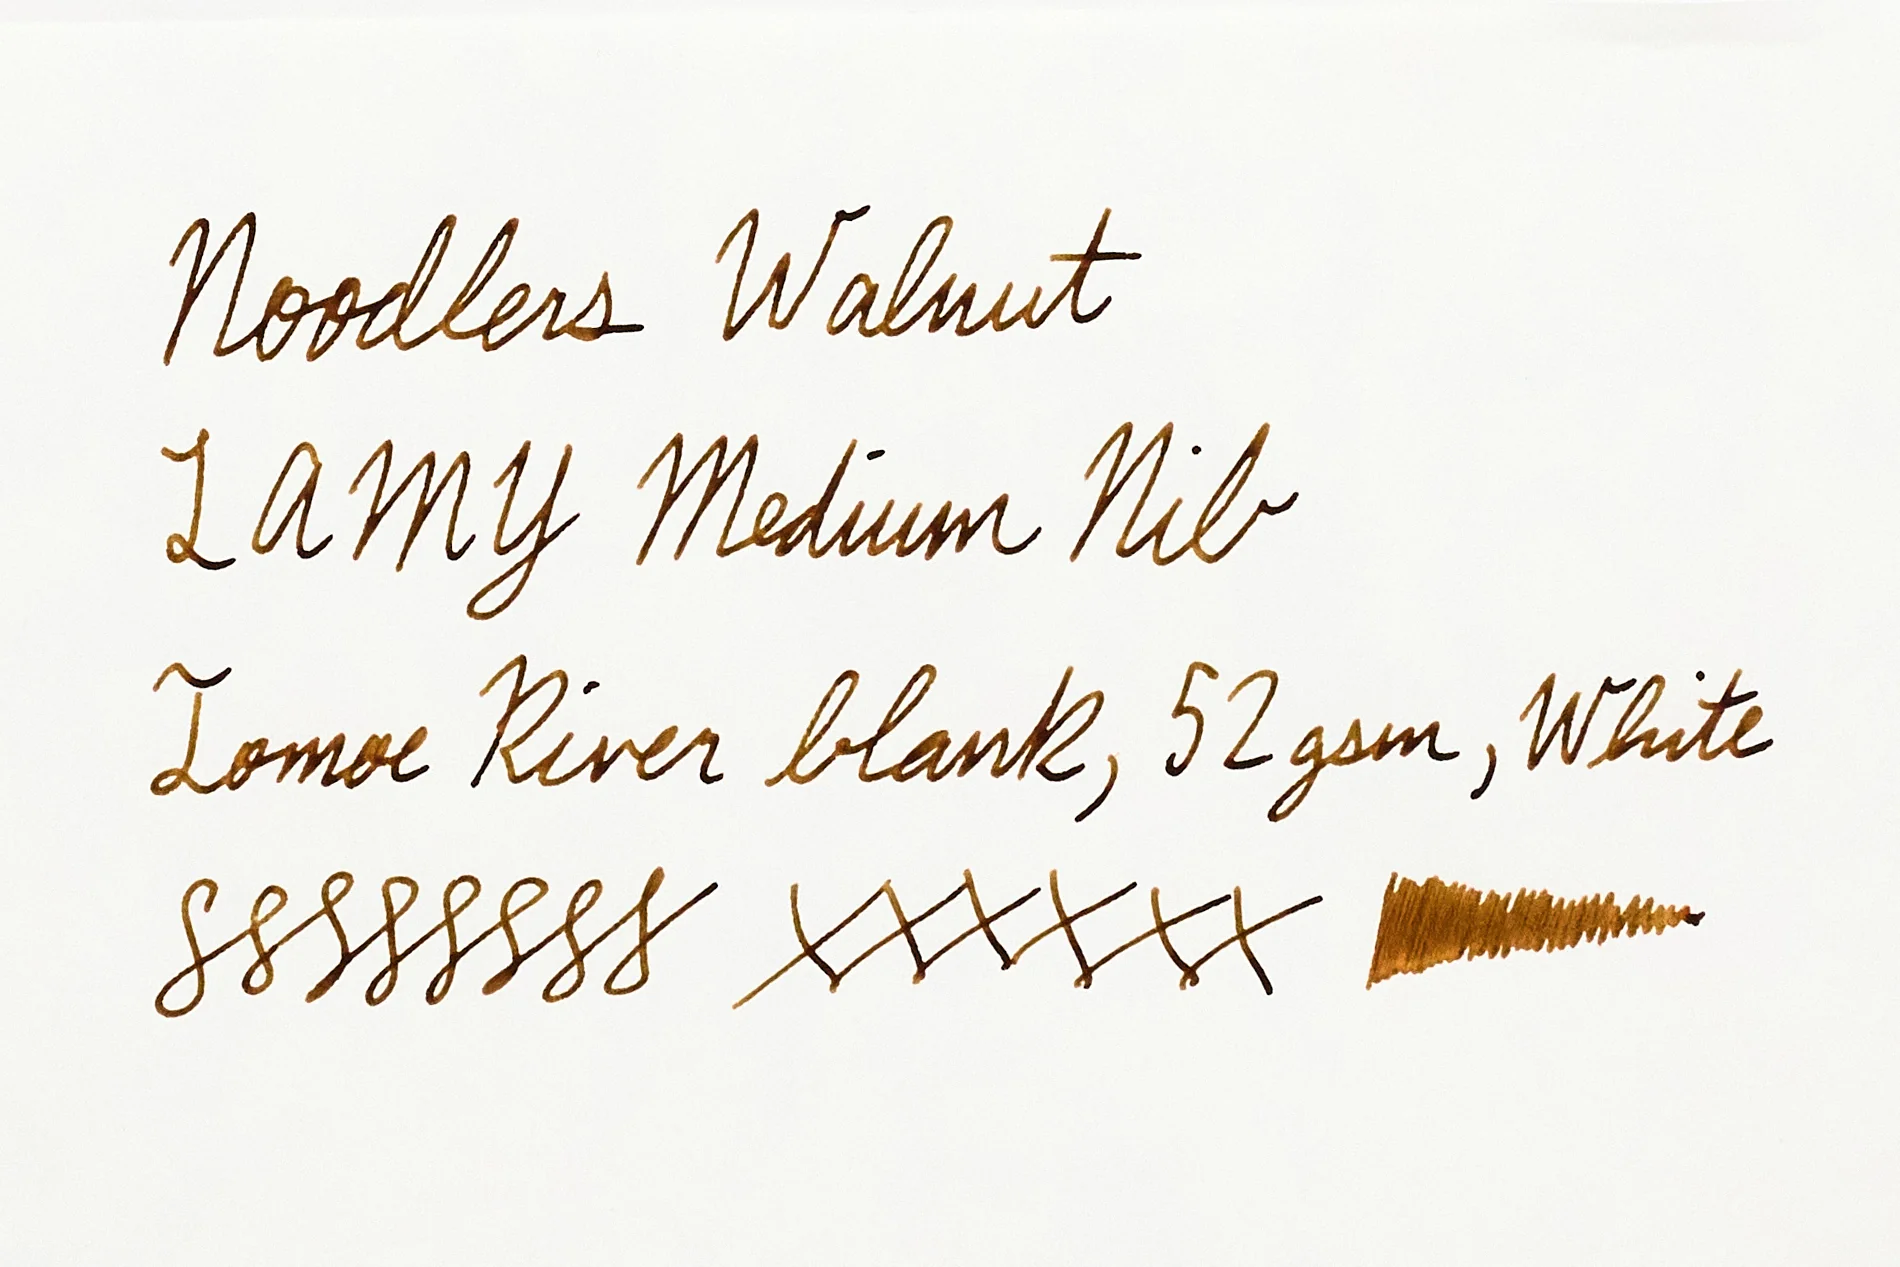 Noodlers Walnut
LAMY Medium Nib
Tomoe River blank, 52gsm, White